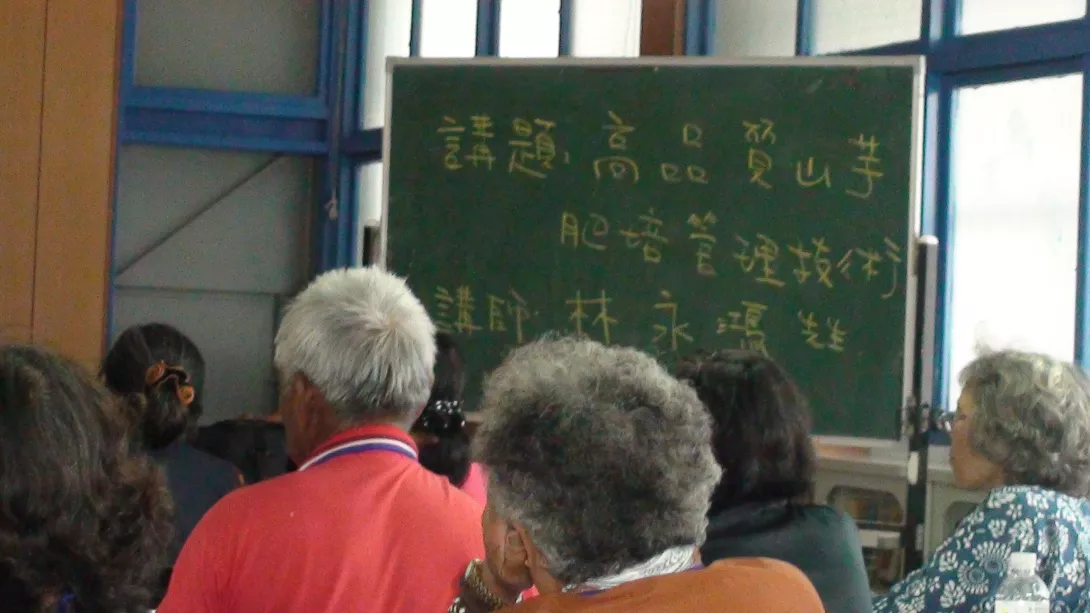 講題:高品質山芋
肥培管理技術
講師:林永鴻先生